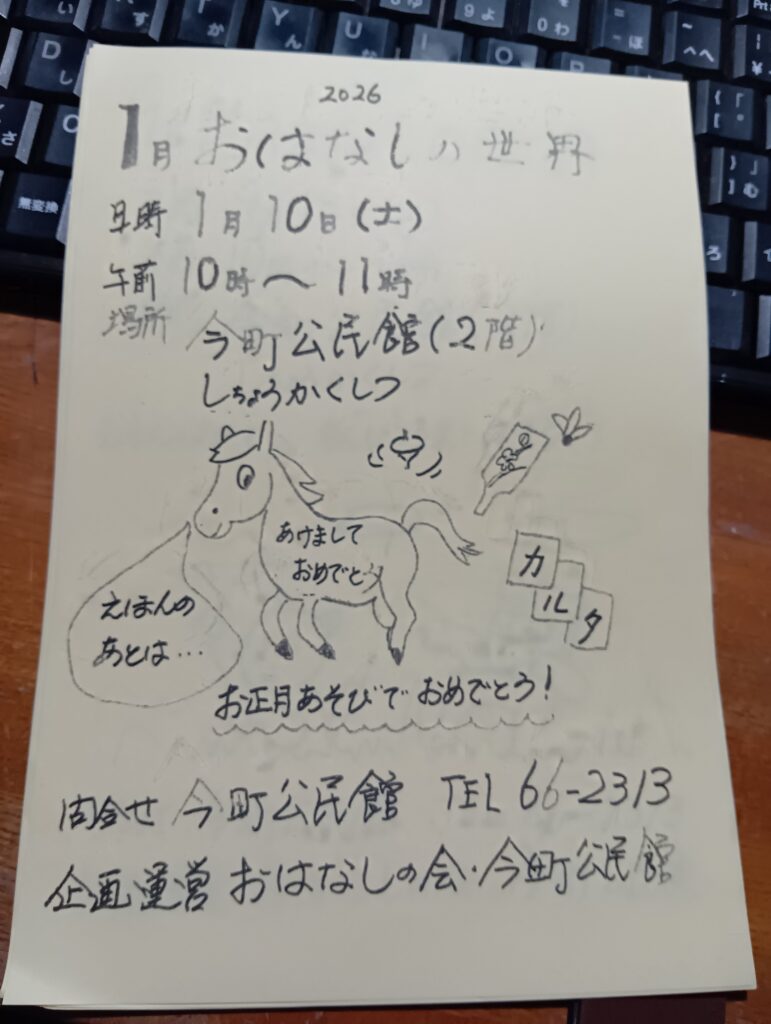 2026
1月 おはなしの世界
日時 1月10日(土)
午前 10時〜11時
場所 今町公民館(2階)
しちょうかくしつ
あけまして
おめでとう
カ
ル
タ
えほんの
あとは…
お正月あそびで おめでとう!
問合せ 今町公民館 TEL 66-2313
企画運営 おはなしの会・今町公民館
無変換